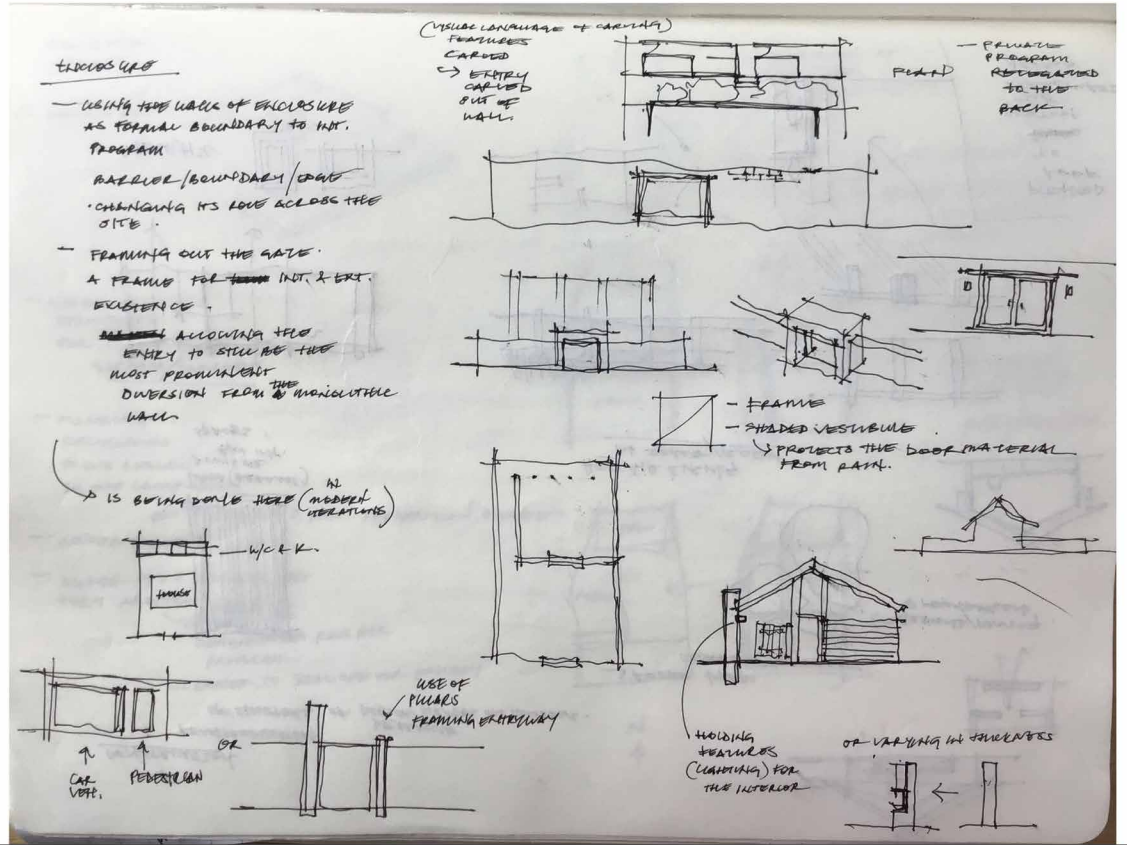 ENCLOSURE
— USING THE WALLS OF ENCLOSURE
AS FORMAL BOUNDARY TO INT.
PROGRAM
BARRIER/BOUNDARY/EDGE
· CHANGING ITS ROLE ACROSS THE
SITE.
— FRAMING OUT THE GATE.
A FRAME FOR INT. & EXT.
EXISTENCE.
ALLOWING THE
ENTRY TO STILL BE THE
MOST PROMINENT
DIVERSION FROM THE MONOLITHIC
WALL
IS BEING DONE HERE (IN
MODERN
ITERATIONS)
W/C & K.
HOUSE
CAR
VEH.
PEDESTRIAN
OR
USE OF
PILLARS
FRAMING ENTRYWAY
(VISUAL LANGUAGE + CARVING)
FEATURES
CARVED
↳ ENTRY
CARVED
OUT OF
WALL.
PLAN
— PRIVATE
PROGRAM
RELEGATED
TO THE
BACK.
— FRAME
— SHADED VESTIBULE.
↳ PROTECTS THE DOOR MATERIAL
FROM RAIN.
HOLDING
FEATURES
(LIGHTING) FOR
THE INTERIOR
OR VARYING IN THICKNESS